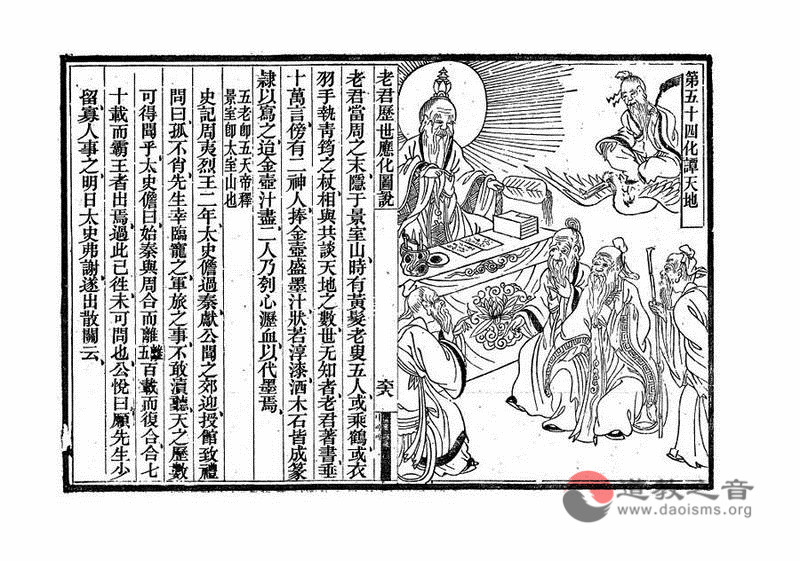 第五十四化譚天地
老君歷世應化圖說
老君當周之末隱于景室山時有黃髮老叟五人或乘鶴或衣
羽手執青筠之杖相與共談天地之數世无知者老君著書垂
十萬言傍有二神人捧金壺盛墨汁狀若淳漆洒木石皆成篆
隸以寫之迨金壺汁盡二人乃刳心瀝血以代墨焉
五老卽五天帝釋
景室卽太室山也
史記周夷烈王二年太史儋過秦獻公聞之郊迎授館致禮
問曰孤不肖先生幸臨寵之軍旅之事不敢瀆聽天之歷數
可得聞乎太史儋曰始秦與周合而離離五百載而復合合七
十載而霸王者出焉過此已徃未可問也公悅曰願先生少
留寡人事之明日太史弗謝遂出散關云
道教之音
www.daoisms.org